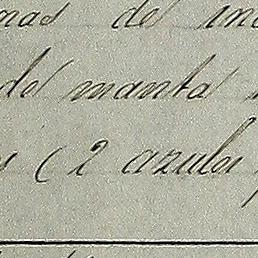 mas de
de manta
(2 azules